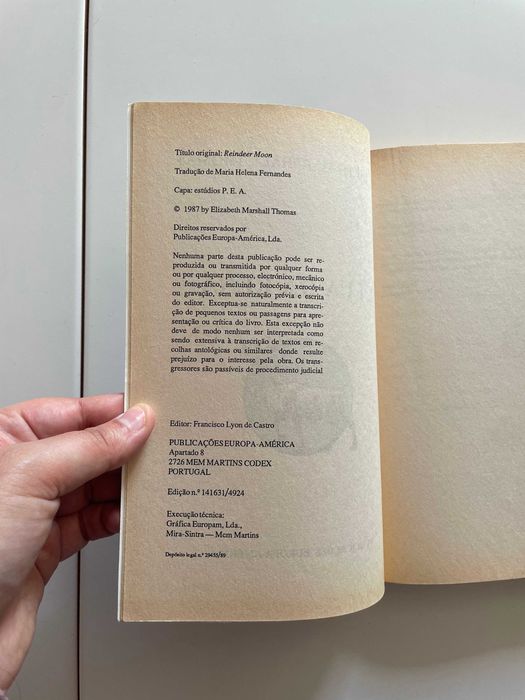 Título original: Reindeer Moon
Tradução de Maria Helena Fernandes
Capa: estúdios P. E. A.
© 1987 by Elizabeth Marshall Thomas
Direitos reservados por
Publicações Europa-América, Lda.
Nenhuma parte desta publicação pode ser re-
produzida ou transmitida por qualquer forma
ou por qualquer processo, electrónico, mecânico
ou fotográfico, incluindo fotocópia, xerocópia
ou gravação, sem autorização prévia e escrita
do editor. Exceptua-se naturalmente a transcri-
ção de pequenos textos ou passagens para apre-
sentação ou crítica do livro. Esta excepção não
deve de modo nenhum ser interpretada como
sendo extensiva à transcrição de textos em re-
colhas antológicas ou similares donde resulte
prejuízo para o interesse pela obra. Os trans-
gressores são passíveis de procedimento judicial
Editor: Francisco Lyon de Castro
PUBLICAÇÕES EUROPA-AMÉRICA
Apartado 8
2726 MEM MARTINS CODEX
PORTUGAL
Edição n.º 141631/4924
Execução técnica:
Gráfica Europam, Lda.,
Mira-Sintra — Mem Martins
Depósito legal n.º 29455/89